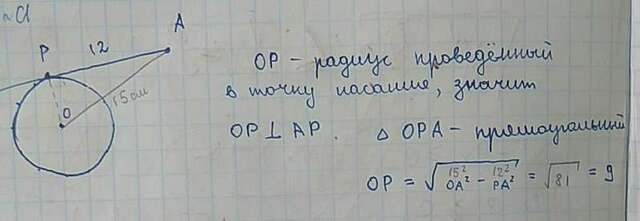 а
P 12 A
O 15 см
OP - радиус проведённый
в точку касание, значит
OP ⊥ AP. △ OPA - прямоугольный
15² 12²
OP = √OA² - PA² = √81 = 9